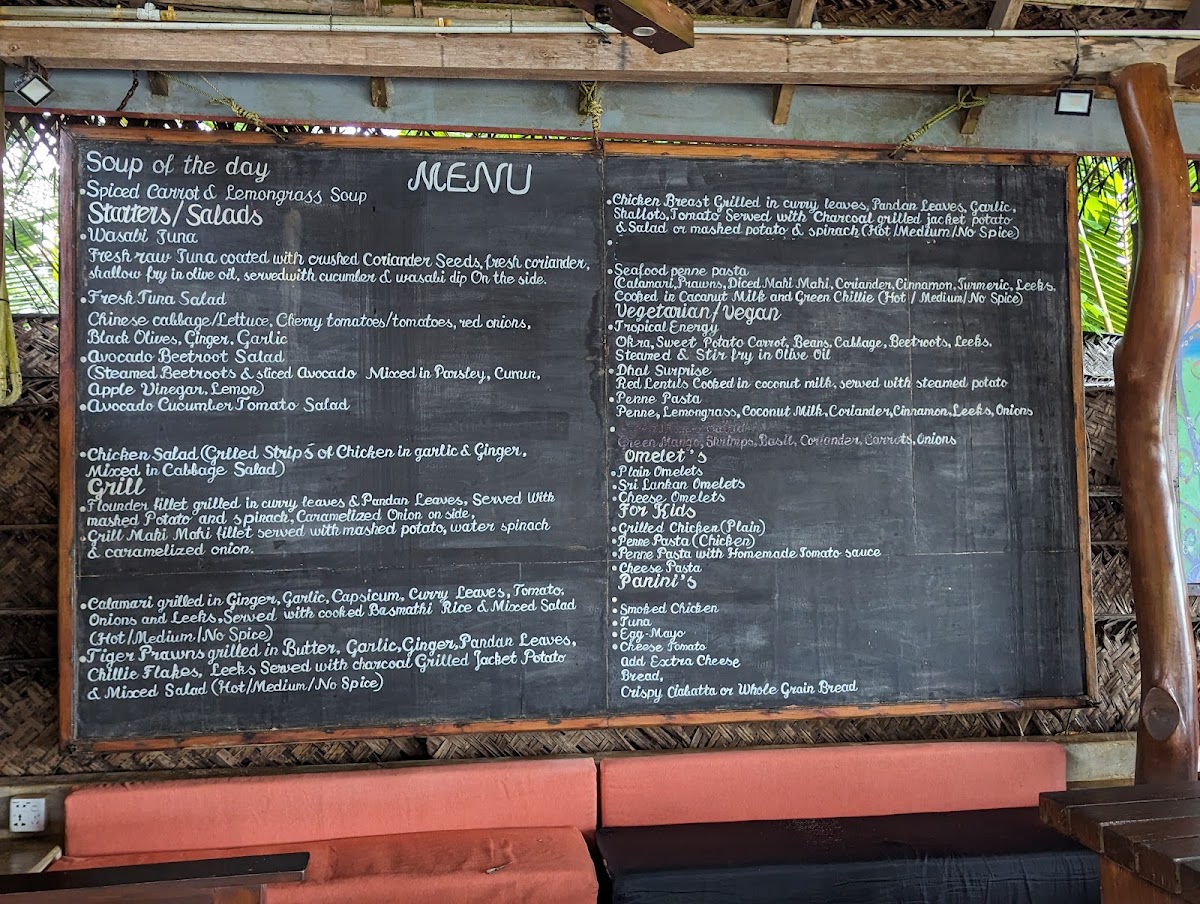 MENU
Soup of the day
•Spiced Carrot & Lemongrass Soup
Statters/Salads
•Wasabi Tuna
Fresh raw Tuna coated with crushed Coriander Seeds, fresh coriander,
shallow fry in olive oil, servedwith cucumber & wasabi dip On the side.
•Fresh Tuna Salad
Chinese cabbage/Lettuce, Cherry tomatoes/tomatoes, red onions,
Black Olives, Ginger, Garlic
•Avocado Beetroot Salad
(Steamed Beetroots & sliced Avocado Mixced in Parsley, Cumin,
Apple Vinegar, Lemon)
•Avocado Cucumber Tomato Salad
•Chicken Salad (Grilled Strip's of Chicken in garlic & Ginger,
Mixed in Cabbage Salad)
Grill
•Flounder fillet grilled in curry leaves & Pandan Leaves, Served With
mashed Potato and spinach, Caramelized Onion on side,
•Grill Mahi Mahi fillet served with mashed potato, water spinach
& caramelized onion.
•Calamari grilled in Ginger, Garlic, Capsicum, Curry Leaves, Tomato,
Onions and Leeks, Served with cooked Basmathi Rice & Mixed Salad
(Hot/Medium/No Spice)
•Tiger Prawns grilled in Butter, Garlic, Ginger, Pandan Leaves,
Chillie Flakes, Leeks Served with charcoal Grilled Jacket Potato
& Mixed Salad (Hot/Medium/No Spice)
•Chicken Breast Grilled in curry leaves, Pandan Leaves, Garlic,
Shallots, Tomato Served with Charcoal grilled jacket potato
& Salad or mashed potato & spinach (Hot/Medium/No Spice)
•Seafood penne pasta
(Calamari, Prawns, Diced Mahi Mahi, Coriander, Cinnamon, Turmeric, Leeks.
Cooked in Cacanut Milk and Green Chillie (Hot / Medium/No Spice)
Vegetarian/Vegan
•Tropical Energy
Okra, Sweet Potato Carrot, Beans, Cabbage, Beetroots, Leeks.
Steamed & Stir fry in Olive Oil
•Dhal Surprise
Red Lentils Cooked in coconut milk, served with steamed potato
•Penne Pasta
Penne, Lemongrass, Coconut Milk, Coriander, Cinnamon, Leeks, Onions
Green Mango, Shrimps, Basil, Coriander, Carrots, Onions
Omelet's
•Plain Omelets
•Sri Lankan Omelets
•Cheese Omelets
For Kids
•Grilled Chicken (Plain)
•Penne Pasta (Chicken)
•Penne Pasta with Homemade Tomato sauce
•Cheese Pasta
Panini's
•Smoked Chicken
•Tuna
•Egg-Mayo
•Cheese Tomato
add Extra Cheese
Bread,
Crispy Ciabatta or Whole Grain Bread